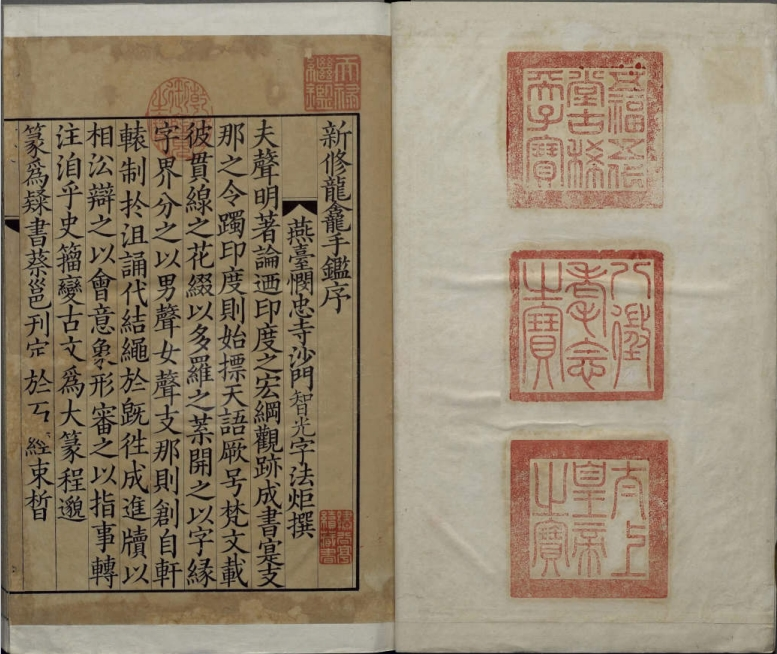 五福五代
堂古稀
天子寶
八徵
耄念
之寶
太上
皇帝
之寶
天祿
繼鑑
乾隆
御覽
之寶
新修龍龕手鑑序
燕臺憫忠寺沙門智光字法炬撰
夫聲明著論迺印度之宏綱觀跡成書寔支
那之令躅印度則始摽天語厥号梵文載
彼貫線之花綴以多羅之葉開之以字緣
字界分之以男聲女聲支那則創自軒
轅制扵沮誦代結繩於旣徃成進牘以
相訟辯之以會意象形審之以指事轉
注洎乎史籀變古文爲大篆程邈
篆爲隸書蔡邕刊定於石經束晳